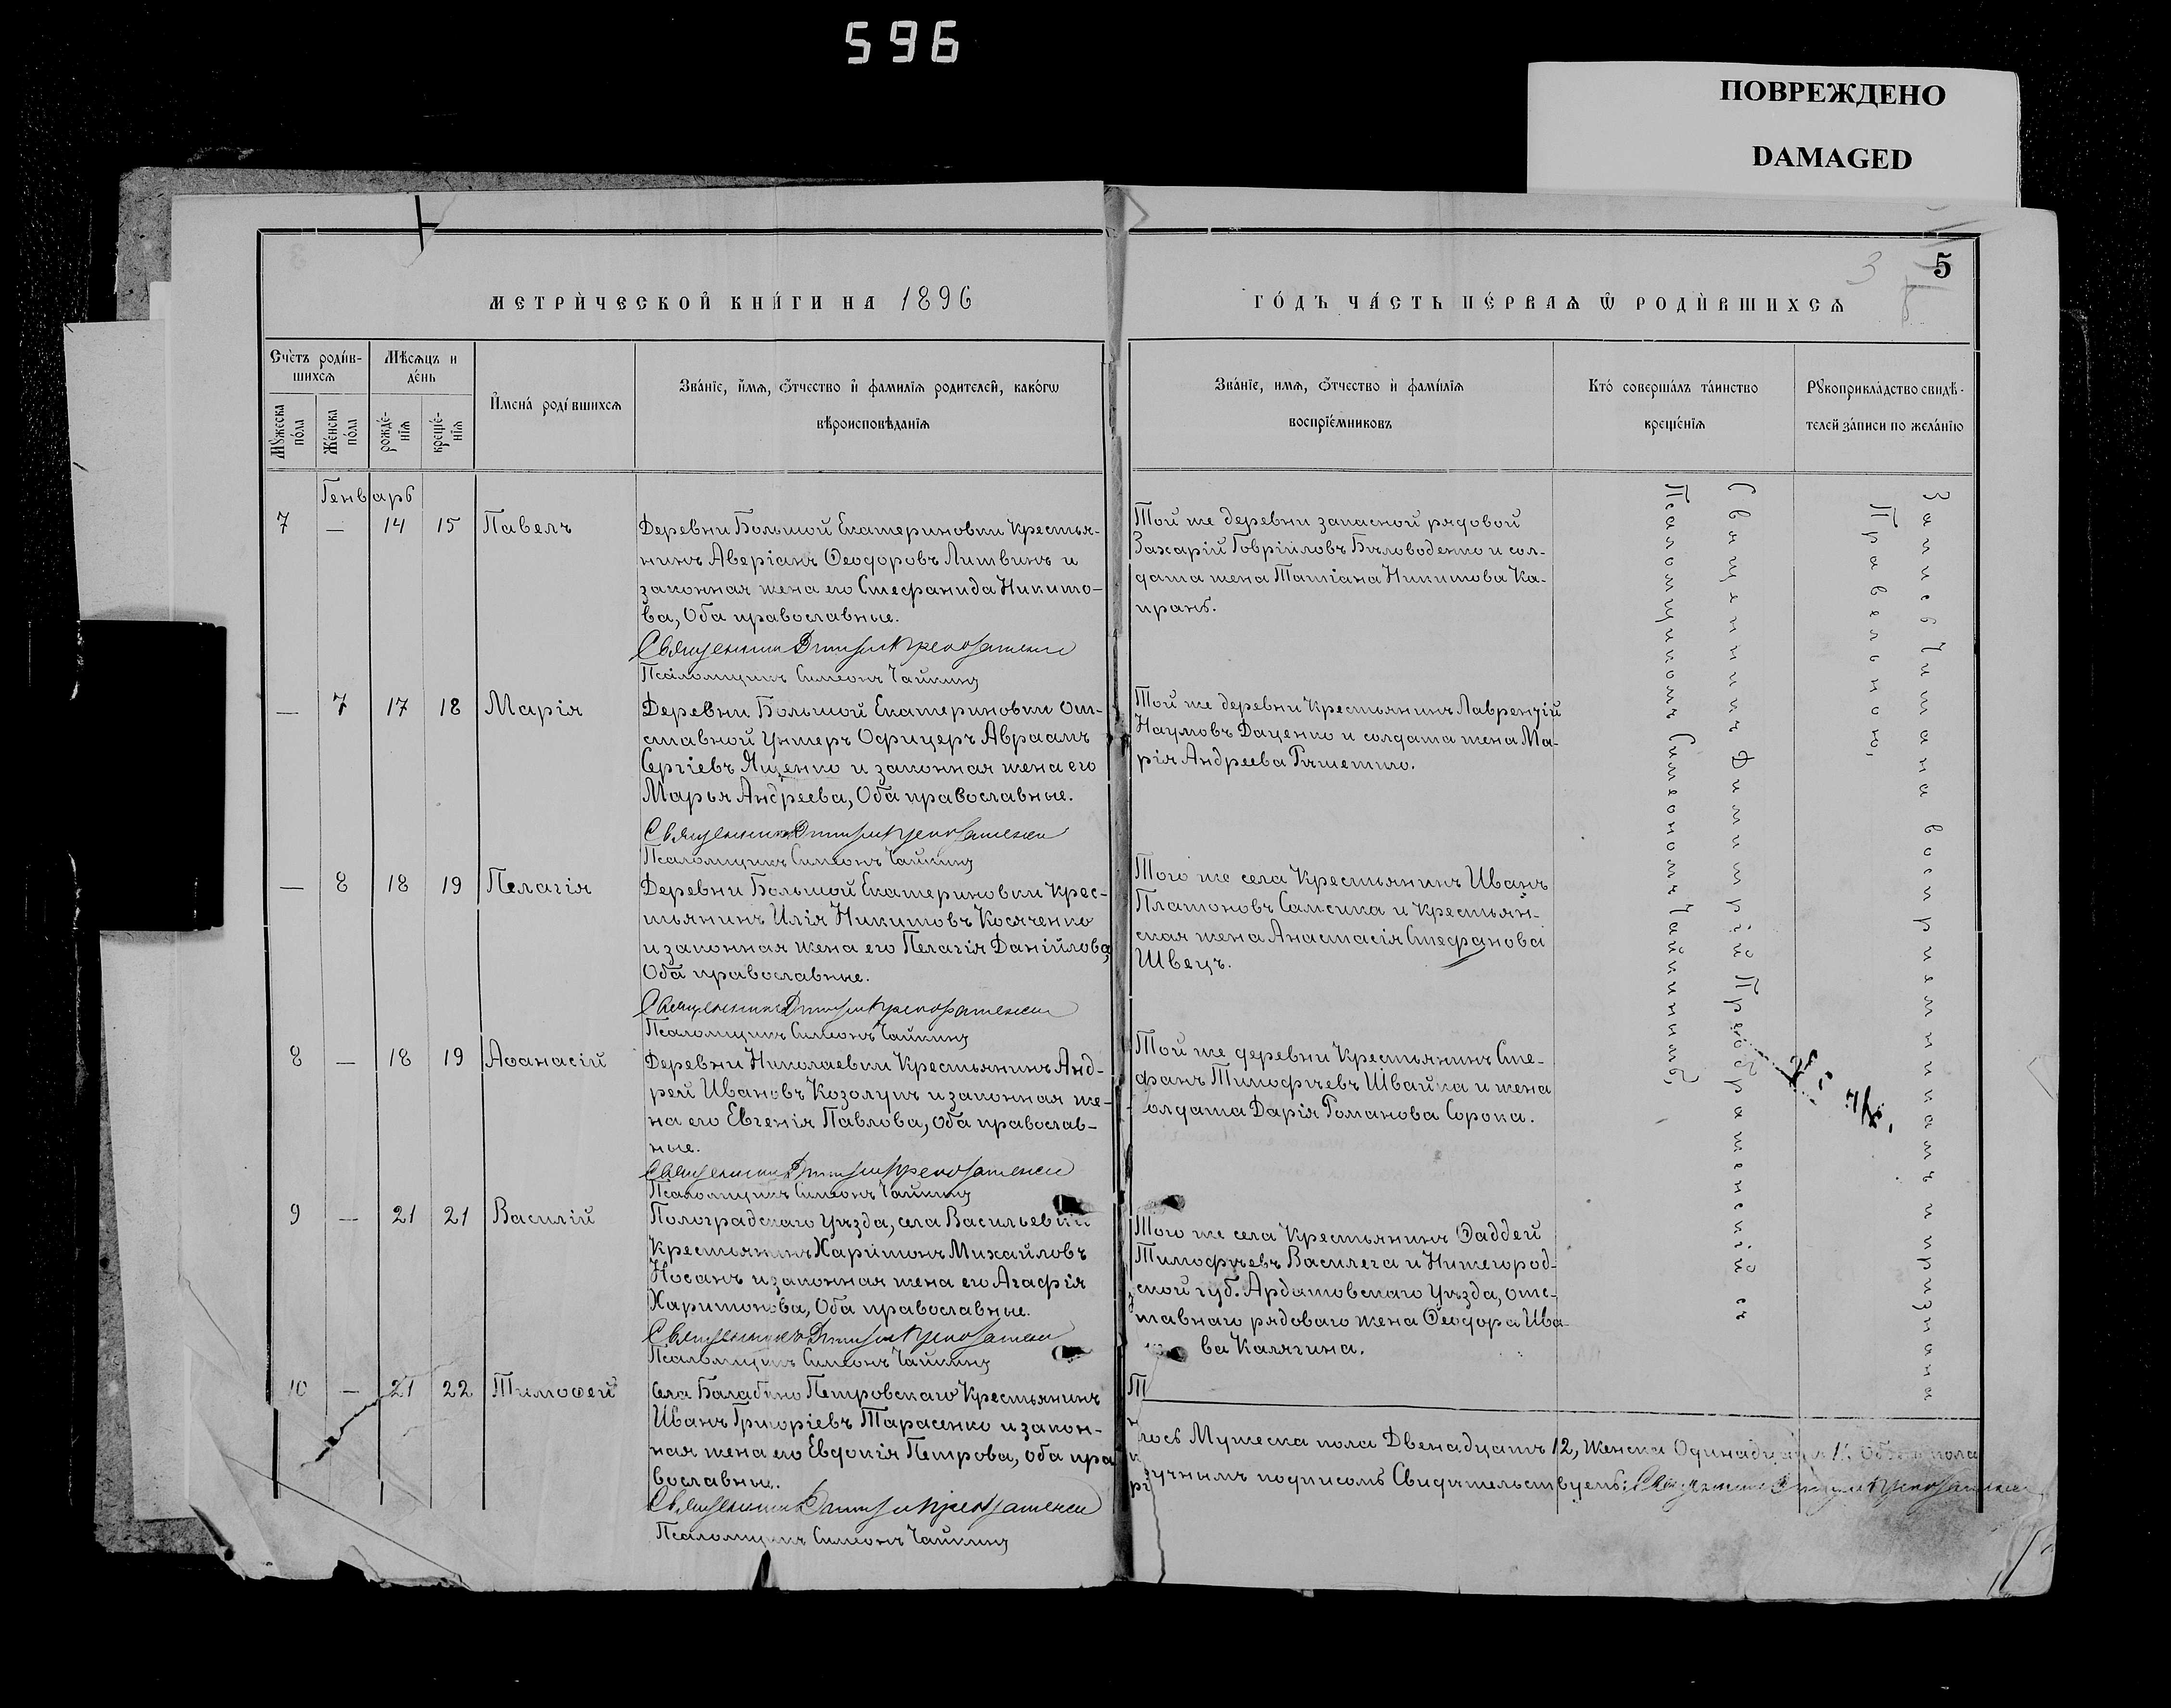 596
ПОВРЕЖДЕНО
DAMAGED
3
5
МЕТРИ́ЧЕСКОЙ КНИ́ГИ НА 1896
ГО́ДЪ ЧА́СТЬ ПЕ́РВАѦ Ѿ РОДИ́ВШИХСѦ
Счетъ роди́в-
шихсѧ
Мѣсѧцъ и
де́нь
Мꙋжеска
по́ла
Же́нска
по́ла
рожде́-
нїѧ
креще́-
нїѧ
И҆мена́ роди́вшихсѧ
Зва́нїе, и҆́мѧ, ѻ҆́тчество и҆ фами́лїѧ родителей, како́гѡ
вѣроисповѣ́данїѧ
Зва́нїе, имѧ, ѻ҆́тчество и҆ фами́лїѧ
воспрїе́мниковъ
Кто́ соверша́лъ та́инство
креще́нїѧ
Рꙋкоприкла́дство свидѣ́-
телей за́писи по жела́нїю
Генварь
7 — 14 15 Павелъ
Деревни Большой Екатериновки Крестья-
нинъ Аверіанъ Ѳеодоровъ Литвинъ и
законная жена его Стефанида Никито-
ва, Оба православные.
Священникъ Димитрій Преображенскій
Псаломщикъ Симеонъ Чайкинъ
Той же деревни запасной рядовой
Захарій Говріиловъ Бѣловоденко и сол-
дата жена Татіана Никитова Ка-
прань.
— 7 17 18 Марія
Деревни Большой Екатериновки От-
ставной Унтеръ Офицеръ Авраамъ
Сергіевъ Ященко и законная жена его
Марья Андреева, Оба православные.
Священникъ Димитрій Преображенскій
Псаломщикъ Симеонъ Чайкинъ
Той же деревни Крестьянинъ Лаврентій
Наумовъ Даценко и солдата жена Ма-
рія Андреева Рѣшетило.
— 8 18 19 Пелагія
Деревни Большой Екатериновки Крес-
тьянинъ Илія Никитовъ Косяченко
и законная жена его Пелагія Даніилова,
Оба православные.
Священникъ Димитрій Преображенскій
Псаломщикъ Симеонъ Чайкинъ
Того же села Крестьянинъ Иванъ
Платоновъ Самсика и Крестьян-
ская жена Анастасія Стефанова
Швецъ.
8 — 18 19 Аѳанасій
Деревни Николаевки Крестьянинъ Анд-
рей Ивановъ Козолупъ и законная же-
на его Евгенія Павлова, Оба православ-
ные.
Священникъ Димитрій Преображенскій
Псаломщикъ Симеонъ Чайкинъ
Той же деревни Крестьянинъ Сте-
фанъ Тимофѣевъ Швайка и жена
солдата Дарія Романова Сорока.
9 — 21 21 Василій
Пологradскаго Уѣзда, села Васильевки
Крестьянинъ Харитонъ Михайловъ
Носанъ и законная жена его Агафія
Харитонова, Оба православные.
Священникъ Димитрій Преображенскій
Псаломщикъ Симеонъ Чайкинъ
Того же села Крестьянинъ Ѳаддей
Тимофѣевъ Василега и Нижегород-
ской губ. Ардатовскаго Уѣзда, отс-
тавнаго рядоваго жена Ѳеодора Ива-
ва Калягина.
10 — 21 22 Тимоѳей
Села Балабино Петровскаго Крестьянинъ
Иванъ Григоріевъ Тарасенко и закон-
ная жена его Евдокія Петрова, оба пра
вославные.
Священникъ Димитрій Преображенскій
Псаломщикъ Симеонъ Чайкинъ
Священникъ Димитрій Преображенскій съ
Псаломщикомъ Симеономъ Чайкинымъ
Запись Читана воспріемникамъ и признана
Правельною,
лось Мужеска пола Двенадцать 12, Женска Одинадцать 11. Обоего пола
ручнымъ подписомъ Свидѣтельствуемъ: Священникъ Димитрій Преображенскій